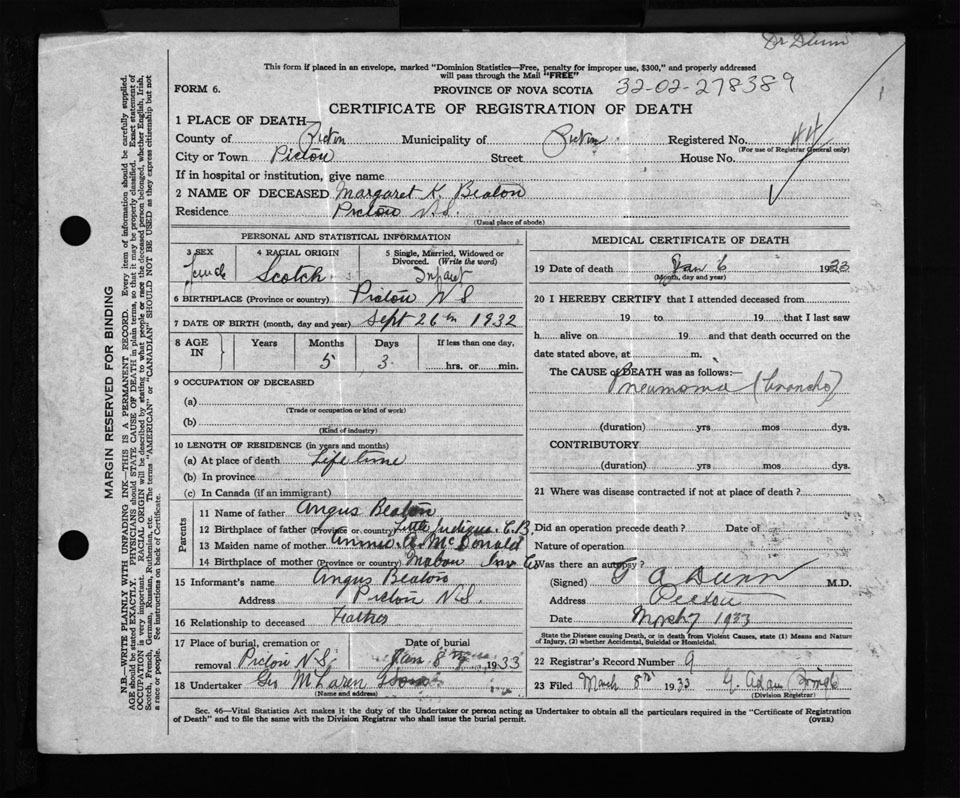 Dr Dunn
This form if placed in an envelope, marked "Dominion Statistics—Free, penalty for improper use, $300," and properly addressed
will pass through the Mail "FREE"
FORM 6.
PROVINCE OF NOVA SCOTIA 32-02-278389
CERTIFICATE OF REGISTRATION OF DEATH
1 PLACE OF DEATH
County of Pictou Municipality of Pictou Registered No. 44
(For use of Registrar General only)
City or Town Pictou Street House No.
If in hospital or institution, give name
2 NAME OF DECEASED Margaret K. Beaton
Residence Pictou N.S.
(Usual place of abode)
PERSONAL AND STATISTICAL INFORMATION
3 SEX 4 RACIAL ORIGIN 5 Single, Married, Widowed or Divorced. (Write the word)
Female Scotch Infant
6 BIRTHPLACE (Province or country) Pictou N S
7 DATE OF BIRTH (month, day and year) Sept 26th 1932
8 AGE IN Years Months Days If less than one day,
5 3 hrs. or min.
9 OCCUPATION OF DECEASED
(a)
(Trade or occupation or kind of work)
(b)
(Kind of industry)
10 LENGTH OF RESIDENCE (in years and months)
(a) At place of death Life time
(b) In province
(c) In Canada (if an immigrant)
Parents
11 Name of father Angus Beaton
12 Birthplace of father (Province or country) Little Judique C.B.
13 Maiden name of mother Annie A. McDonald
14 Birthplace of mother (Province or country) Mabou Inv Co
15 Informant's name Angus Beaton
Address Pictou N.S.
16 Relationship to deceased Father
17 Place of burial, cremation or Date of burial
removal Pictou N.S. Jan 8 1933
18 Undertaker Geo McLaren
(Name and address)
MEDICAL CERTIFICATE OF DEATH
19 Date of death Jan 6 1933
(Month, day and year)
20 I HEREBY CERTIFY that I attended deceased from
19 to 19 that I last saw
h alive on 19 and that death occurred on the
date stated above, at m.
The CAUSE of DEATH was as follows:—
Pneumonia (broncho)
(duration) yrs mos dys.
CONTRIBUTORY
(duration) yrs. mos. dys.
21 Where was disease contracted if not at place of death?
Did an operation precede death? Date of
Nature of operation
Was there an autopsy?
(Signed) G A Dunn M.D.
Address Pictou
Date 1933
State the Disease causing Death, or in death from Violent Causes, state (1) Means and Nature
of Injury, (2) whether Accidental, Suicidal or Homicidal.
22 Registrar's Record Number 9
23 Filed March 8 1933
(Division Registrar)
Sec. 46—Vital Statistics Act makes it the duty of the Undertaker or person acting as Undertaker to obtain all the particulars required in the "Certificate of Registration
of Death" and to file the same with the Division Registrar who shall issue the burial permit.
(OVER)
MARGIN RESERVED FOR BINDING
N.B.—WRITE PLAINLY WITH UNFADING INK—THIS IS A PERMANENT RECORD. Every item of information should be carefully supplied.
AGE should be stated EXACTLY. PHYSICIANS should STATE CAUSE OF DEATH in plain terms, so that it may be properly classified. Exact statement of
OCCUPATION is very important. RACIAL ORIGIN will be described by stating to what people or race the deceased person belonged, whether English, Irish,
Scotch, French, German, Russian, Ruthenian, etc. The terms "AMERICAN" or "CANADIAN" SHOULD NOT BE USED as they express citizenship but not
a race or people. See instructions on back of Certificate.